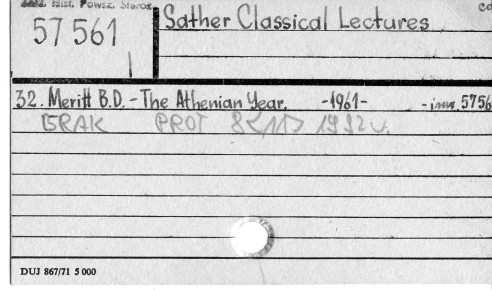 Hist. Powsz. Staroż.
57 561
Sather Classical Lectures
cd
32. Meritt B.D. - The Athenian Year. -1961- - inw. 5756
BRAK PROT 8<11> 1992
DUJ 867/71 5 000